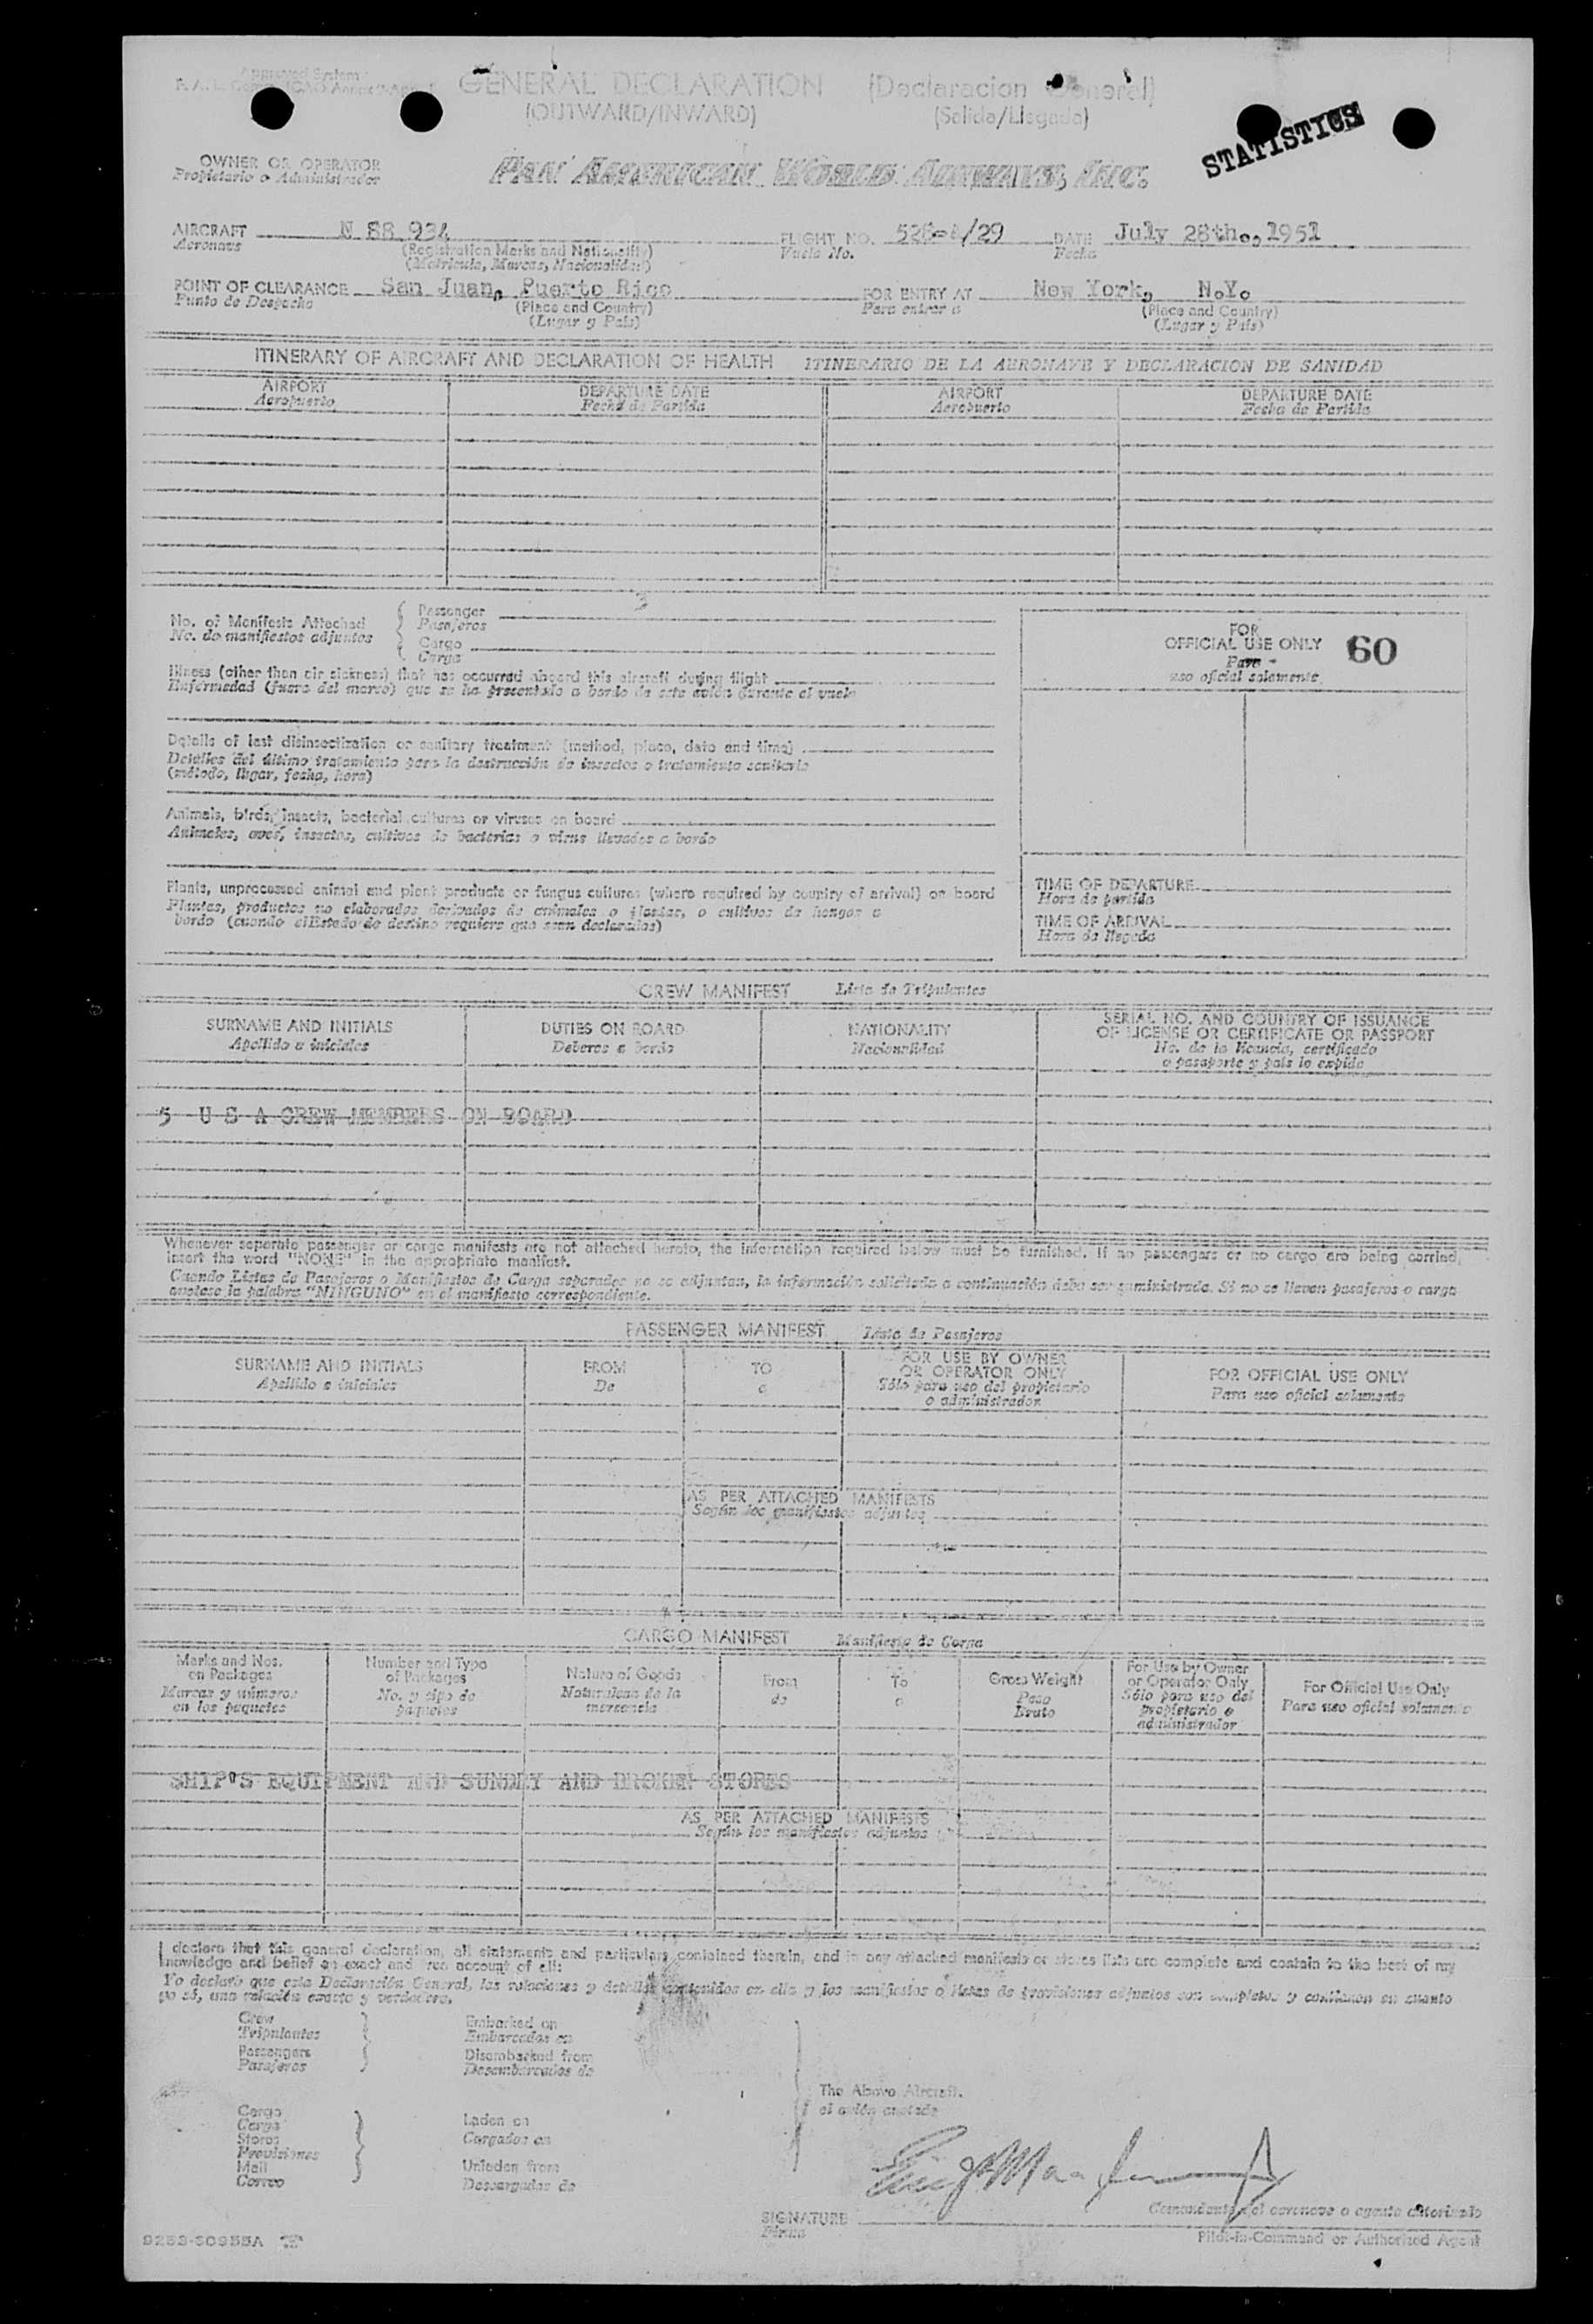 Approved System
GENERAL DECLARATION (Declaracion General)
(OUTWARD/INWARD) (Salida/Llegada)
STATISTICS
OWNER OR OPERATOR
Propietario o Administrador
PAN AMERICAN WORLD AIRWAYS, INC.
AIRCRAFT N 88 934 FLIGHT NO. /29 DATE July 28th., 1951
Aeronave (Registration Marks and Nationality) Vuelo No. Fecha
(Matricula, Marcas, Nacionalidad)
POINT OF CLEARANCE San Juan, Puerto Rico FOR ENTRY AT New York, N.Y.
Punto de Despacho (Place and Country) Para entrar a (Place and Country)
(Lugar y Pais) (Lugar y Pais)
ITINERARY OF AIRCRAFT AND DECLARATION OF HEALTH ITINERARIO DE LA AERONAVE Y DECLARACION DE SANIDAD
AIRPORT DEPARTURE DATE AIRPORT DEPARTURE DATE
Aeropuerto Fecha de Partida Aeropuerto Fecha de Partida
3
No. of Manifests Attached Passenger
No. de manifiestos adjuntos Pasajeros
Cargo
Carga
FOR
OFFICIAL USE ONLY 60
Para
uso oficial solamente.
Illness (other than air sickness) that has occurred aboard this aircraft during flight
Enfermedad (fuera del mareo) que se ha presentado a bordo de este avión durante el vuelo
Details of last disinsectization or sanitary treatment (method, place, date and time)
Detalles del último tratamiento para la destrucción de insectos o tratamiento sanitario
(método, lugar, fecha, hora)
Animals, birds, insects, bacterial cultures or viruses on board
Animales, aves, insectos, cultivos de bacterias o virus llevados a bordo
Plants, unprocessed animal and plant products or fungus cultures (where required by country of arrival) on board
Plantas, productos no elaborados derivados de animales o plantas, o cultivos de hongos a
bordo (cuando el Estado de destino requiere que sean declarados)
TIME OF DEPARTURE
Hora de partida
TIME OF ARRIVAL
Hora de llegada
CREW MANIFEST Lista de Tripulantes
SURNAME AND INITIALS DUTIES ON BOARD NATIONALITY SERIAL NO. AND COUNTRY OF ISSUANCE
Apellido e iniciales Deberes a bordo Nacionalidad OF LICENSE OR CERTIFICATE OR PASSPORT
No. de la licencia, certificado
o pasaporte y país lo expide
5 U S A CREW MEMBERS ON BOARD
Whenever separate passenger or cargo manifests are not attached hereto, the information required below must be furnished. If no passengers or no cargo are being carried,
insert the word "NONE" in the appropriate manifest.
Cuando Listas de Pasajeros o Manifiestos de Carga separados no se adjuntan, la información solicitada a continuación debe ser suministrada. Si no se llevan pasajeros o carga
anotese la palabra "NINGUNO" en el manifiesto correspondiente.
PASSENGER MANIFEST Lista de Pasajeros
SURNAME AND INITIALS FROM TO FOR USE BY OWNER FOR OFFICIAL USE ONLY
Apellido e iniciales De a OR OPERATOR ONLY Para uso oficial solamente
Sólo para uso del propietario
o administrador
AS PER ATTACHED MANIFESTS
Según los manifiestos adjuntos
CARGO MANIFEST Manifiesto de Carga
Marks and Nos. Number and Type Nature of Goods From To Gross Weight For Use by Owner For Official Use Only
on Packages of Packages Naturaleza de la de a Peso or Operator Only Para uso oficial solamente
Marcas y números No. y tipo de mercancía Bruto Sólo para uso del
en los paquetes paquetes propietario o
administrador
SHIP'S EQUIPMENT AND SUNDRY AND BROKEN STORES
AS PER ATTACHED MANIFESTS
Según los manifiestos adjuntos
I declare that this general declaration, all statements and particulars contained therein, and in any attached manifests or stores lists are complete and contain to the best of my
knowledge and belief an exact and true account of all:
Yo declaro que esta Declaración General, las relaciones y detalles contenidos en ella y los manifiestos o listas de provisiones adjuntos son completos y contienen en cuanto
yo sé, una relación exacta y verdadera.
Crew Embarked on
Tripulantes Embarcados en
Passengers Disembarked from
Pasajeros Desembarcados de
The Above Aircraft.
el avión anotado
Cargo Laden on
Carga Cargados en
Stores
Provisiones
Mail Unladen from
Correo Descargados de
SIGNATURE Comandante del aeronave o agente autorizado
Firma Pilot-in-Command or Authorized Agent
9253-50955A